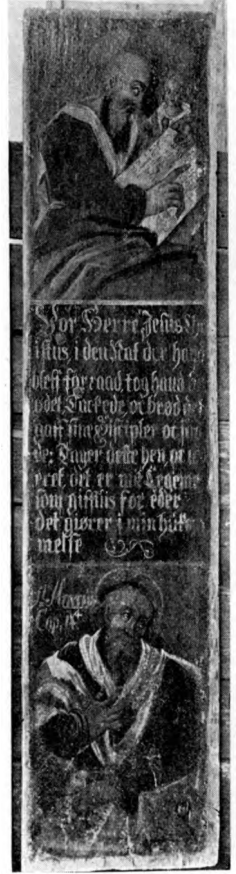 Vor Herre Jesus Ch
istus, i den Nat der hand
bleff forraad, tog hand b
ødet, Tackede, oc brød det
gaff sine Discipler oc
de: Tager dette hen oc
eret, det er mit Legeme
som giffuis for eder
det giører i min hukom
melse
S. Marcus
Cap. 14